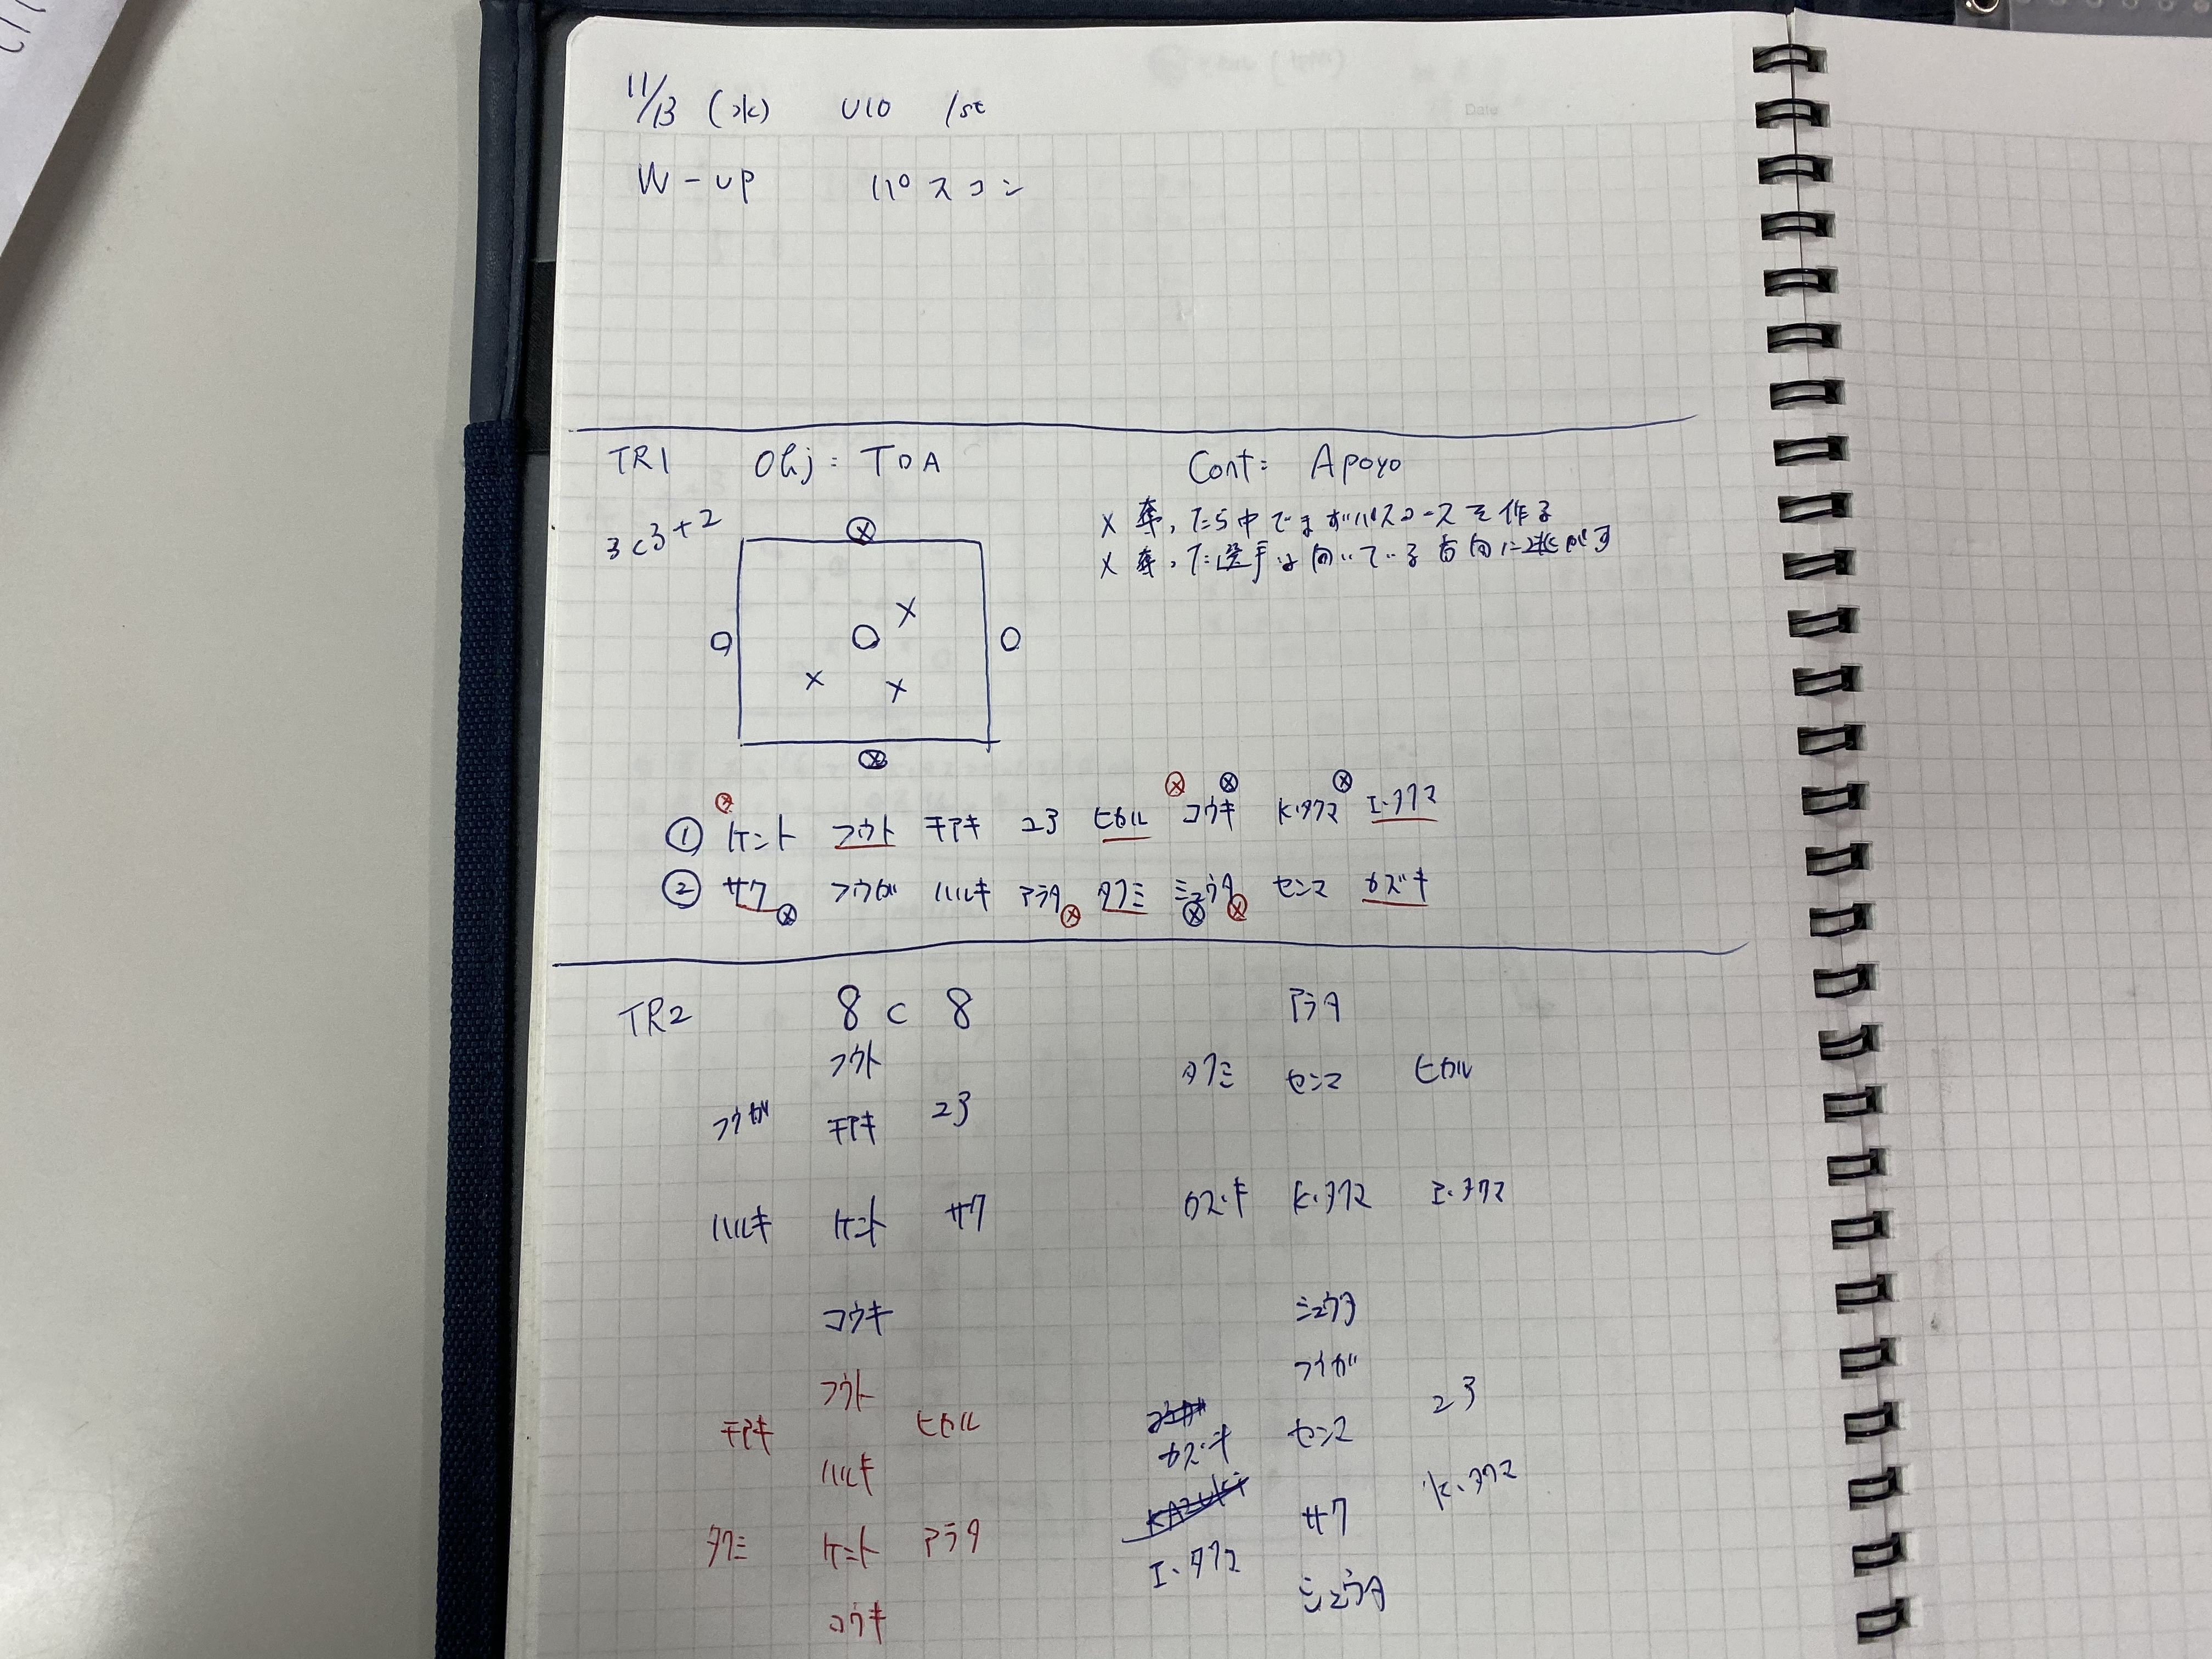 11/13 (水) U10 1st
Date
W-up パスコン
TR1 Obj: TDA Cont: Apoyo
3c3+2
x 奪ったら中でまずパスコースを作る
x 奪った選手は向いている方向に逃がす
① ケント フウト チアキ ユヅ ヒカル コウキ K.タクマ I.タクマ
② サク フウガ ハルキ アラタ タクミ シュウタ センマ カズキ
TR2 8 c 8
フウト
フウガ チアキ
ハルキ ケント サク
コウキ
アラタ
タクミ センマ ヒカル
カズキ K.タクマ I.タクマ
シュウタ
フウト
チアキ ヒカル
ハルキ
タクミ ケント アラタ
コウキ
フウガ
カズキ センマ
KAZUKI
I.タクマ サク K.タクマ
シュウタ